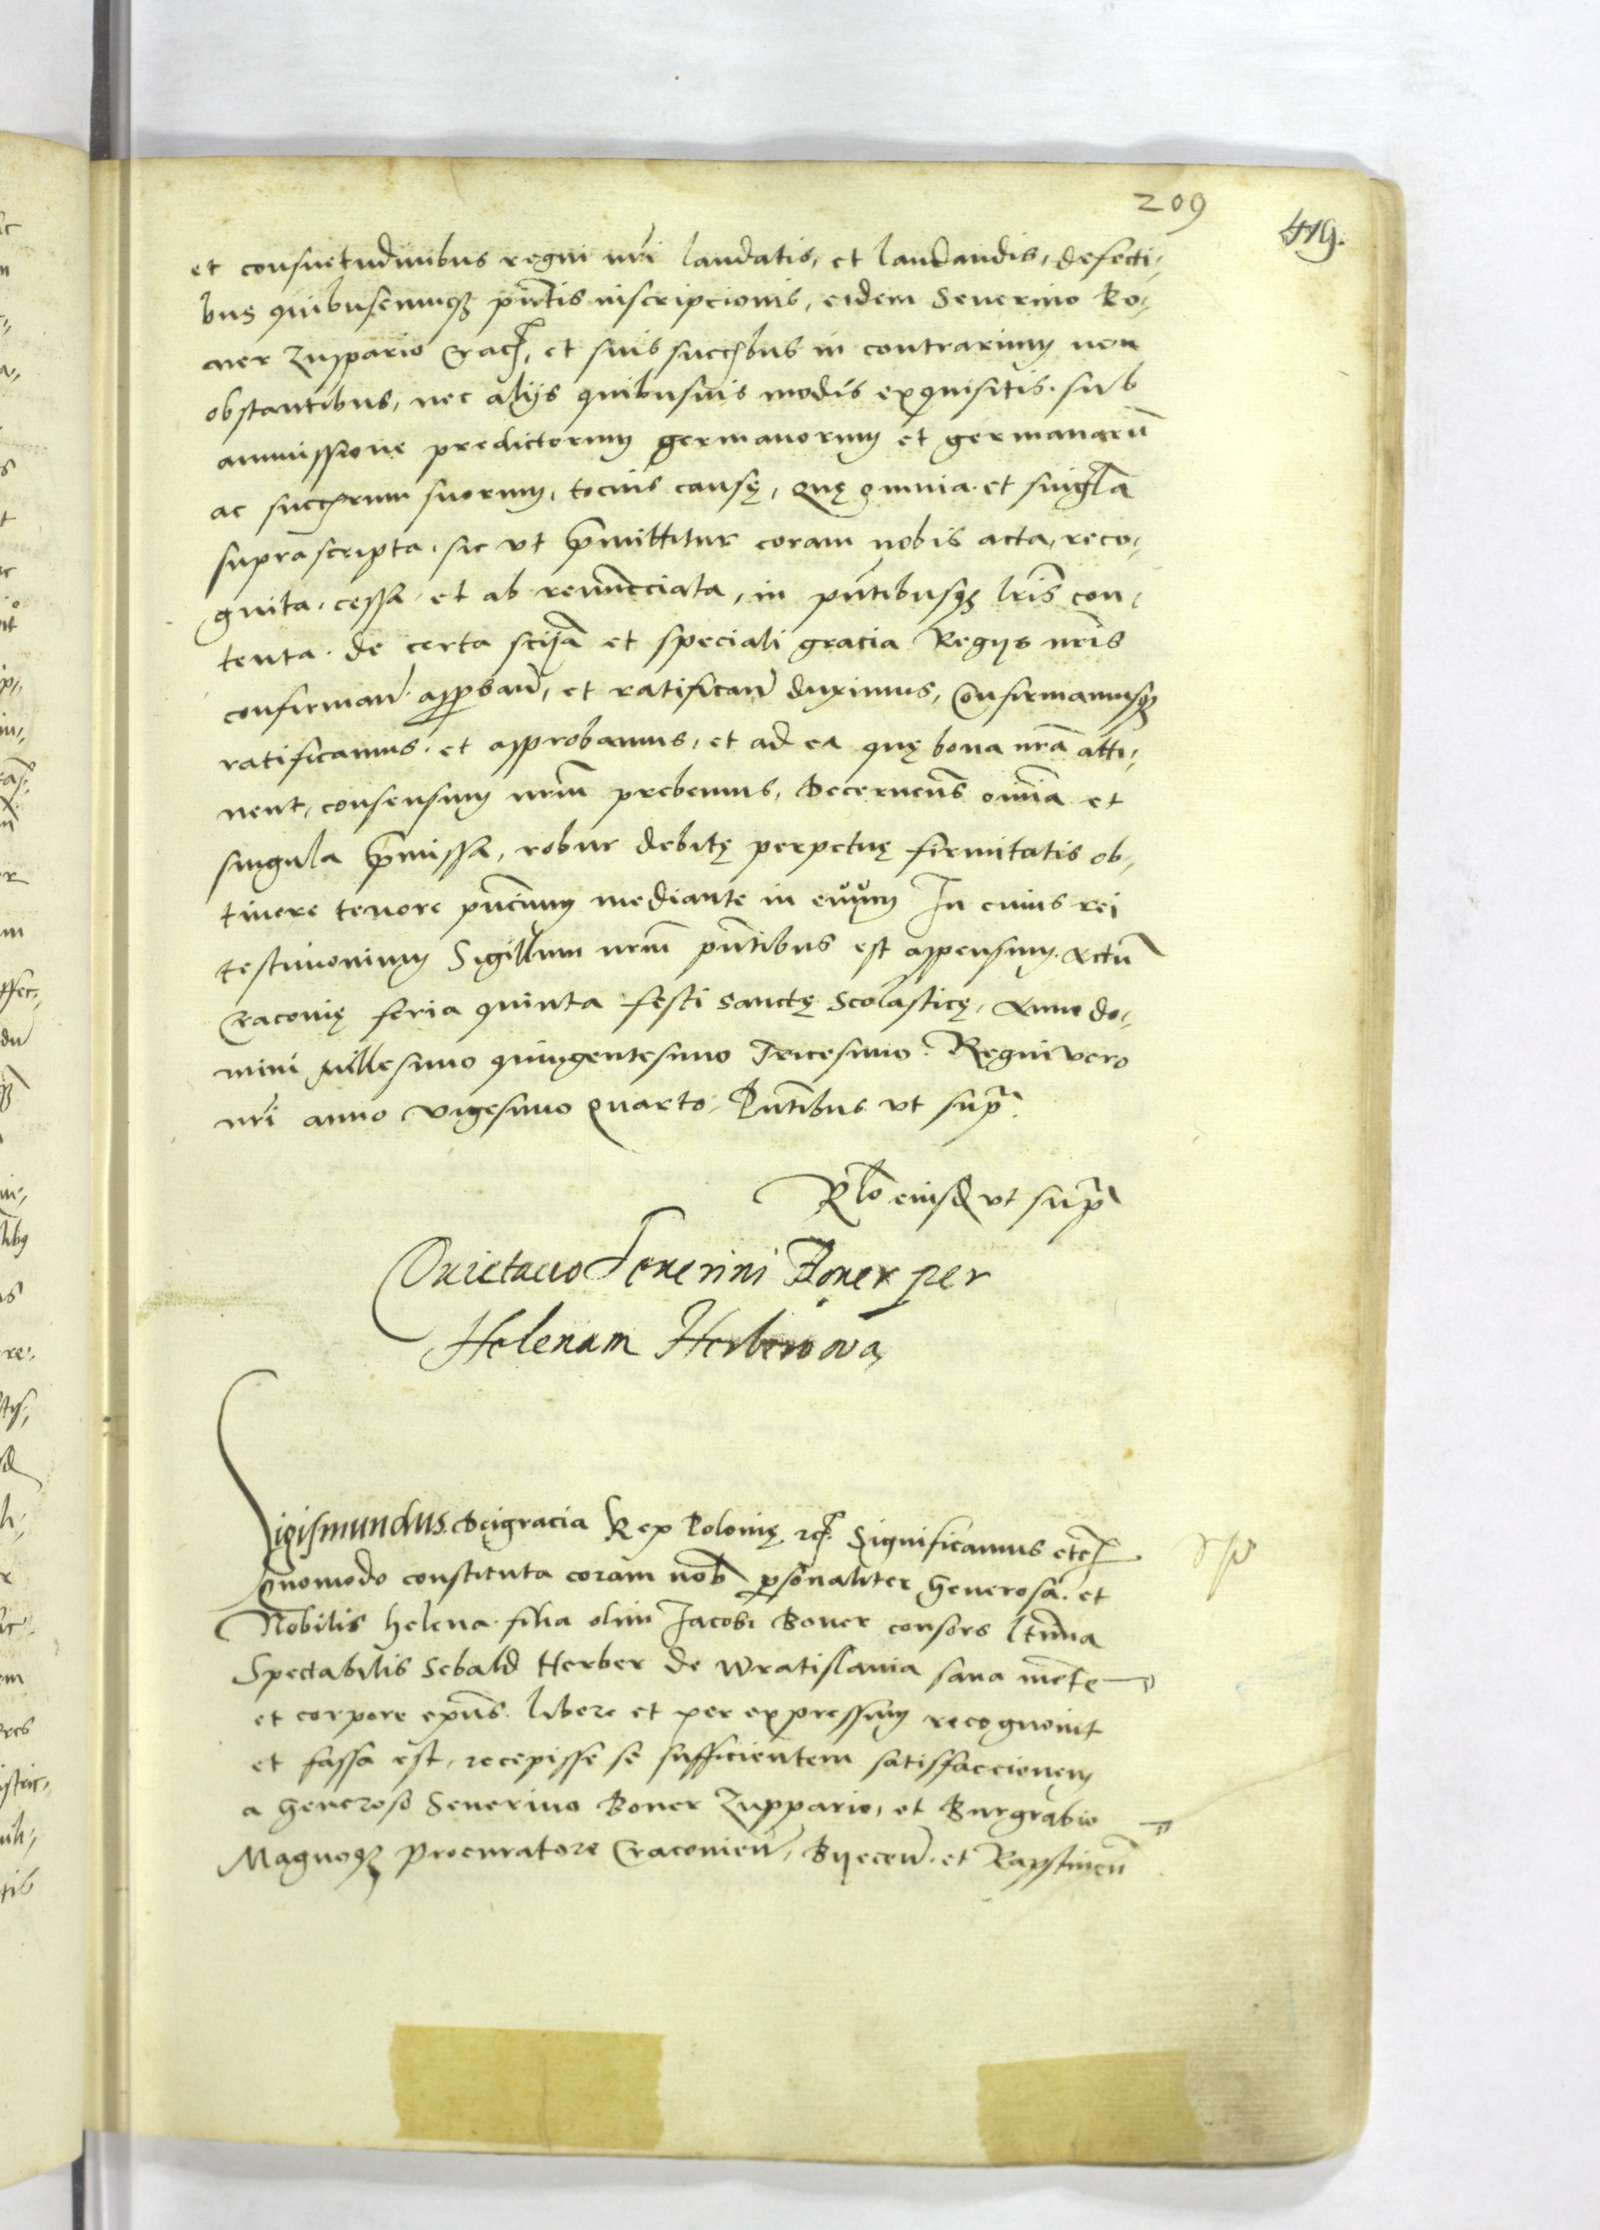 209
419.
et consuetudinibus regni nri laudatis, et laudandis, defecti,
bus quibuscumqꝫ pntis inscripcionis, eidem Severino Bo,
ner Zuppario Crac, et suis succribus in contrarium non
obstantibus, nec alijs quibusuis modis exquisitis. sub
ammissione predictorum germanorum et germanarũ
ac succrum suorum, tocius causę, Quę omnia et singla
suprascripta. sic vt pmittitur coram nobis acta, reco,
gnita, cessa et ab renũcciata, in pntibusqꝫ lris con,
tenta. de certa scija et speciali gracia Regijs nris
confirman. approban, et ratifican duximus, Confirmamusqꝫ
ratificamus. et approbamus, et ad ea quę bona nra atti,
nent, consensum nrm prebemus, Decernens omnia et
singula pmissa, robur debitę perpetuę firmitatis ob,
tinere tenore pncium mediante in euum In cuius rei
testimonium Sigillum nrm pntibus est appensum. Actũ
Cracouię feria quinta festi sanctę Scolasticę, Anno do,
mini Millesimo quingentesimo Tricesimo. Regni vero
nri anno vigesimo quarto. Pntibus vt supra.
Rlo eiusd vt supra
Quietacio Seuerini Boner per
Helenam Herberowa
Sigismundus. Dei gracia Rex Polonię etc. Significamus etc
Quomodo constituta coram nob personaliter Generosa. et
Nobilis Helena. filia olim Jacobi Boner consors ltima
Spectabilis Sebald Herber de Wratislauia sana mente
et corpore expns. libere et per expressum recognouit
et fassa est, recepisse se sufficientem satisfaccionem
a Generoso Seuerino Boner Zuppario, et Burgrabio
Magnoqꝫ Procuratore Cracouien, Byecen. et Rapstinen